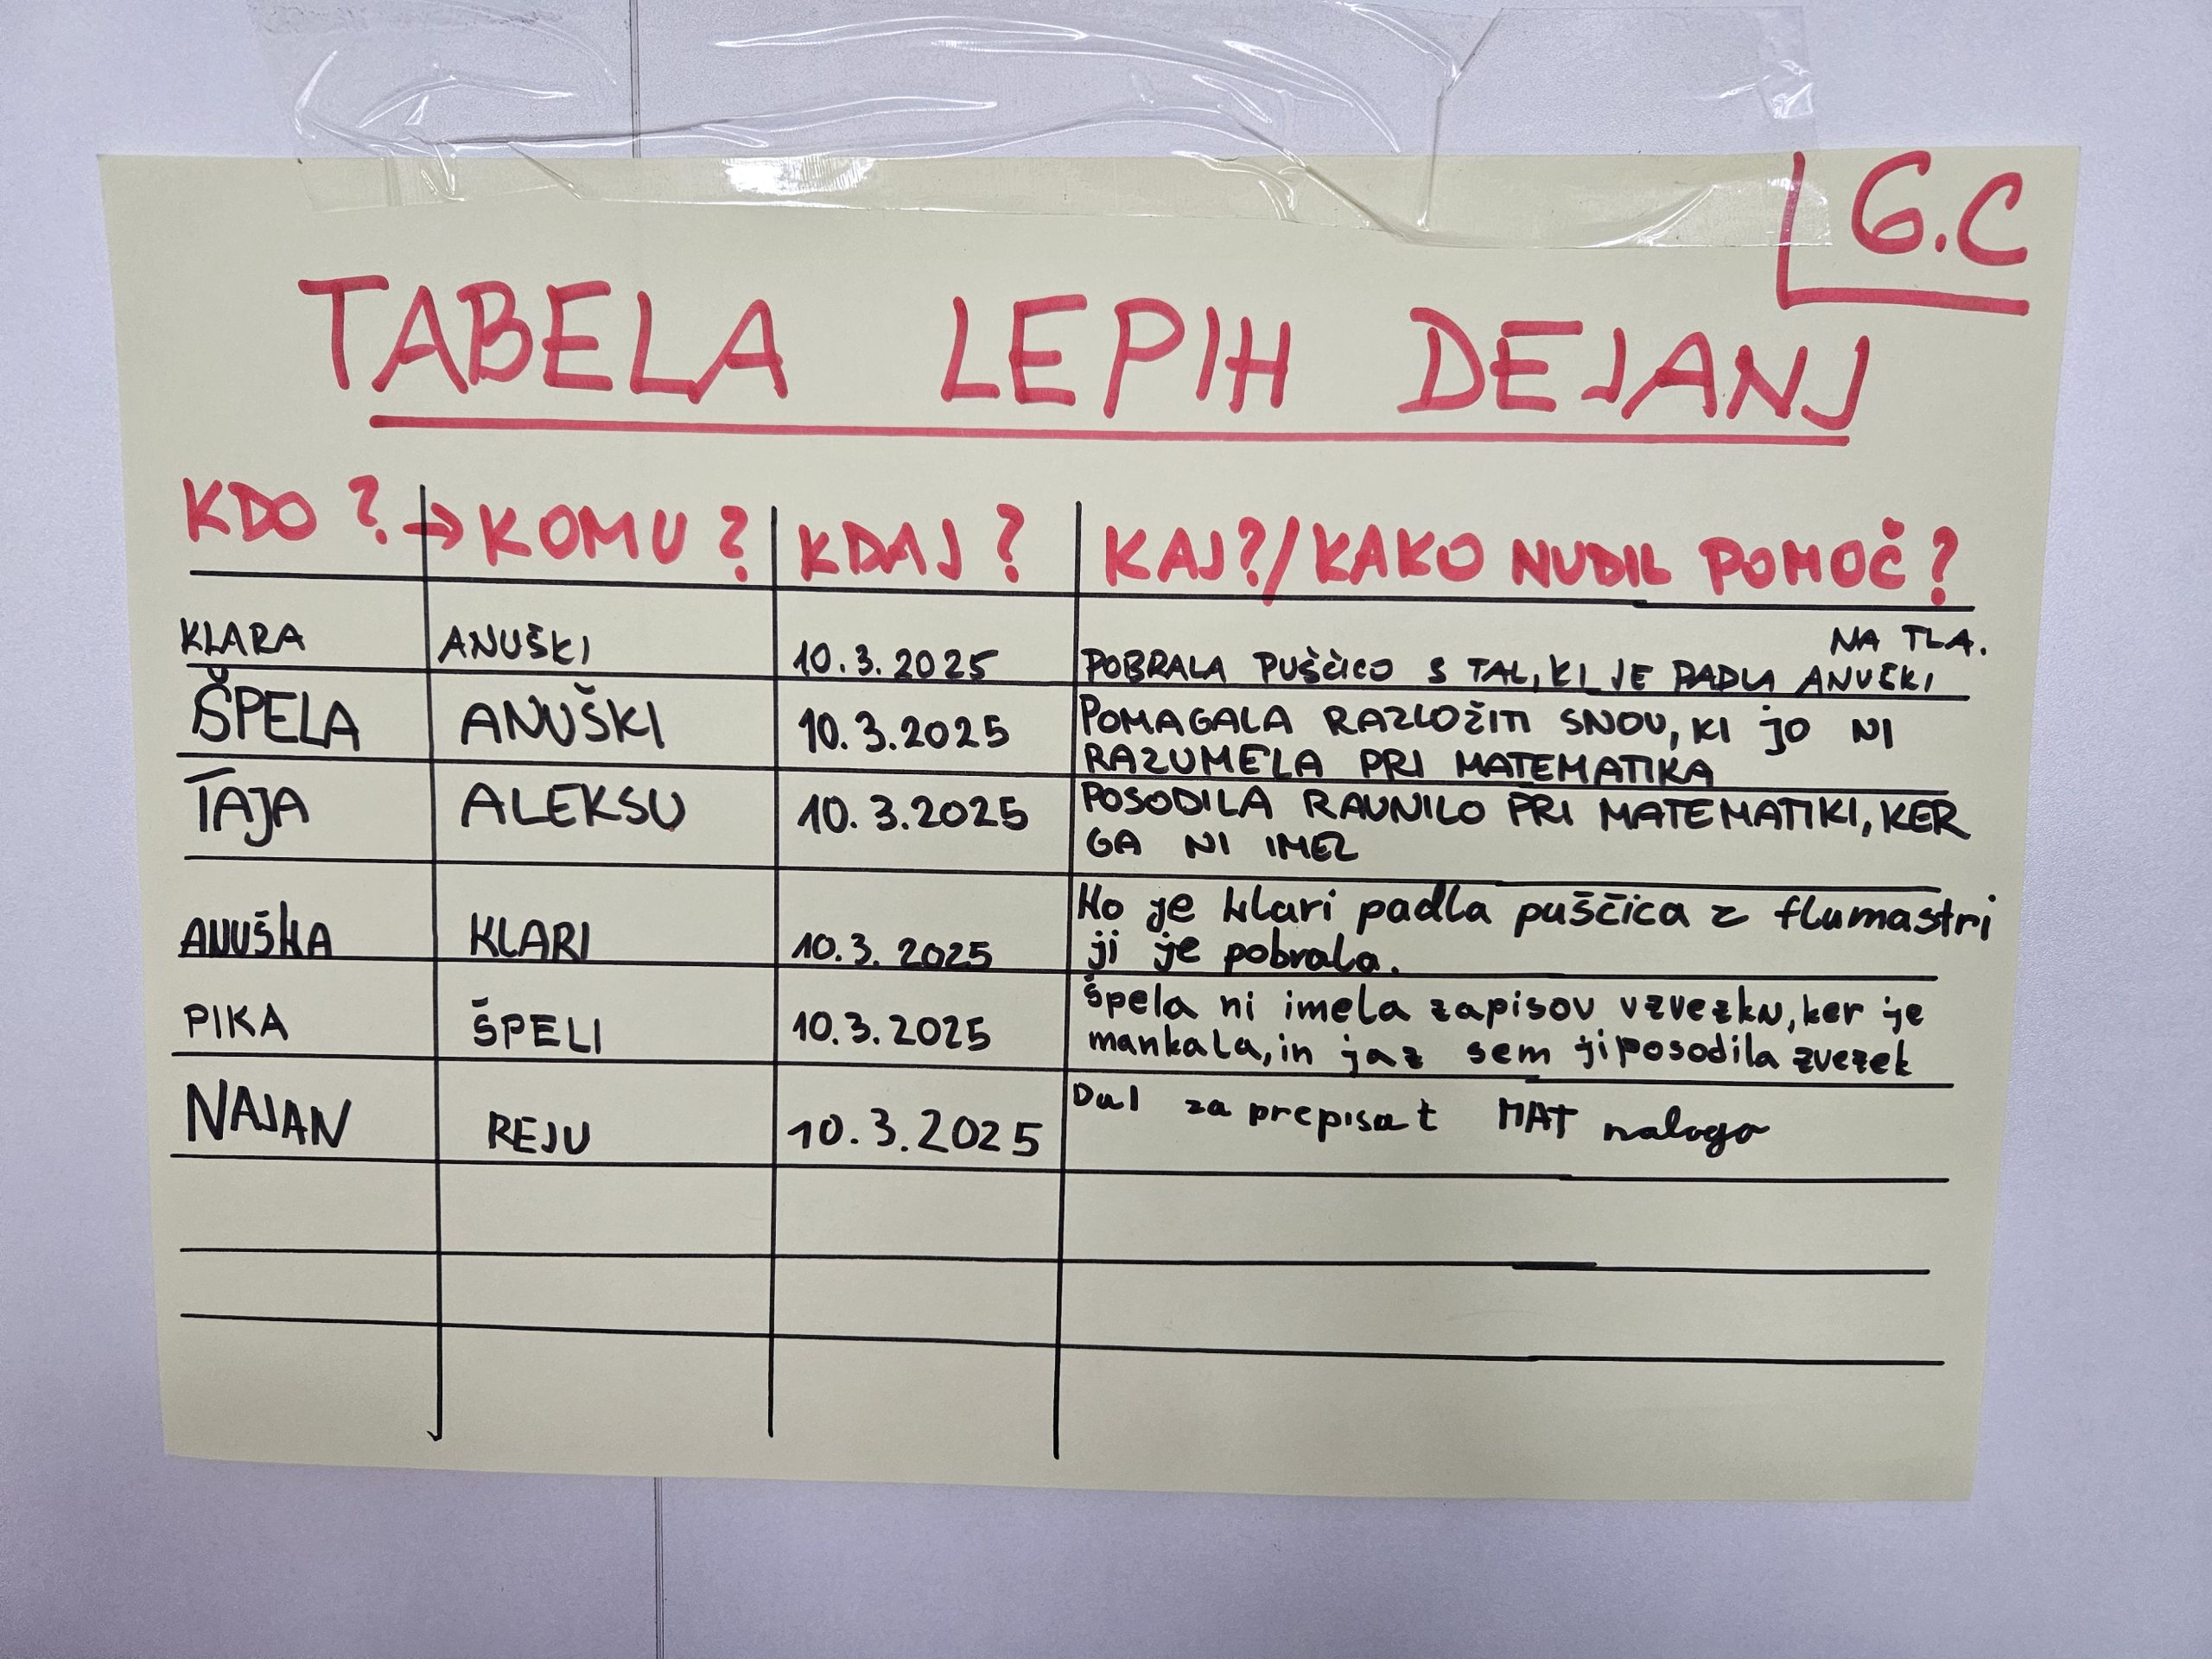 6.C
TABELA LEPIH DEJANJ
KDO? → KOMU? KDAJ? KAJ?/KAKO NUDIL POMOČ?
KLARA ANUŠKI 10.3.2025 POBRALA PUŠČICO S TAL, KI JE PADLA ANUŠKI
NA TLA.
ŠPELA ANUŠKI 10.3.2025 POMAGALA RAZLOŽITI SNOV, KI JO NI
RAZUMELA PRI MATEMATIKA
TAJA ALEKSU 10.3.2025 POSODILA RAVNILO PRI MATEMATIKI, KER
GA NI IMEL
ANUŠKA KLARI 10.3.2025 Ko je klari padla puščica z flumastri
ji je pobrala.
PIKA ŠPELI 10.3.2025 špela ni imela zapisov vzvezku, ker je
mankala, in jaz sem ji posodila zvezek
NAJAN REJU 10.3.2025 Dal za prepisat MAT nalogo